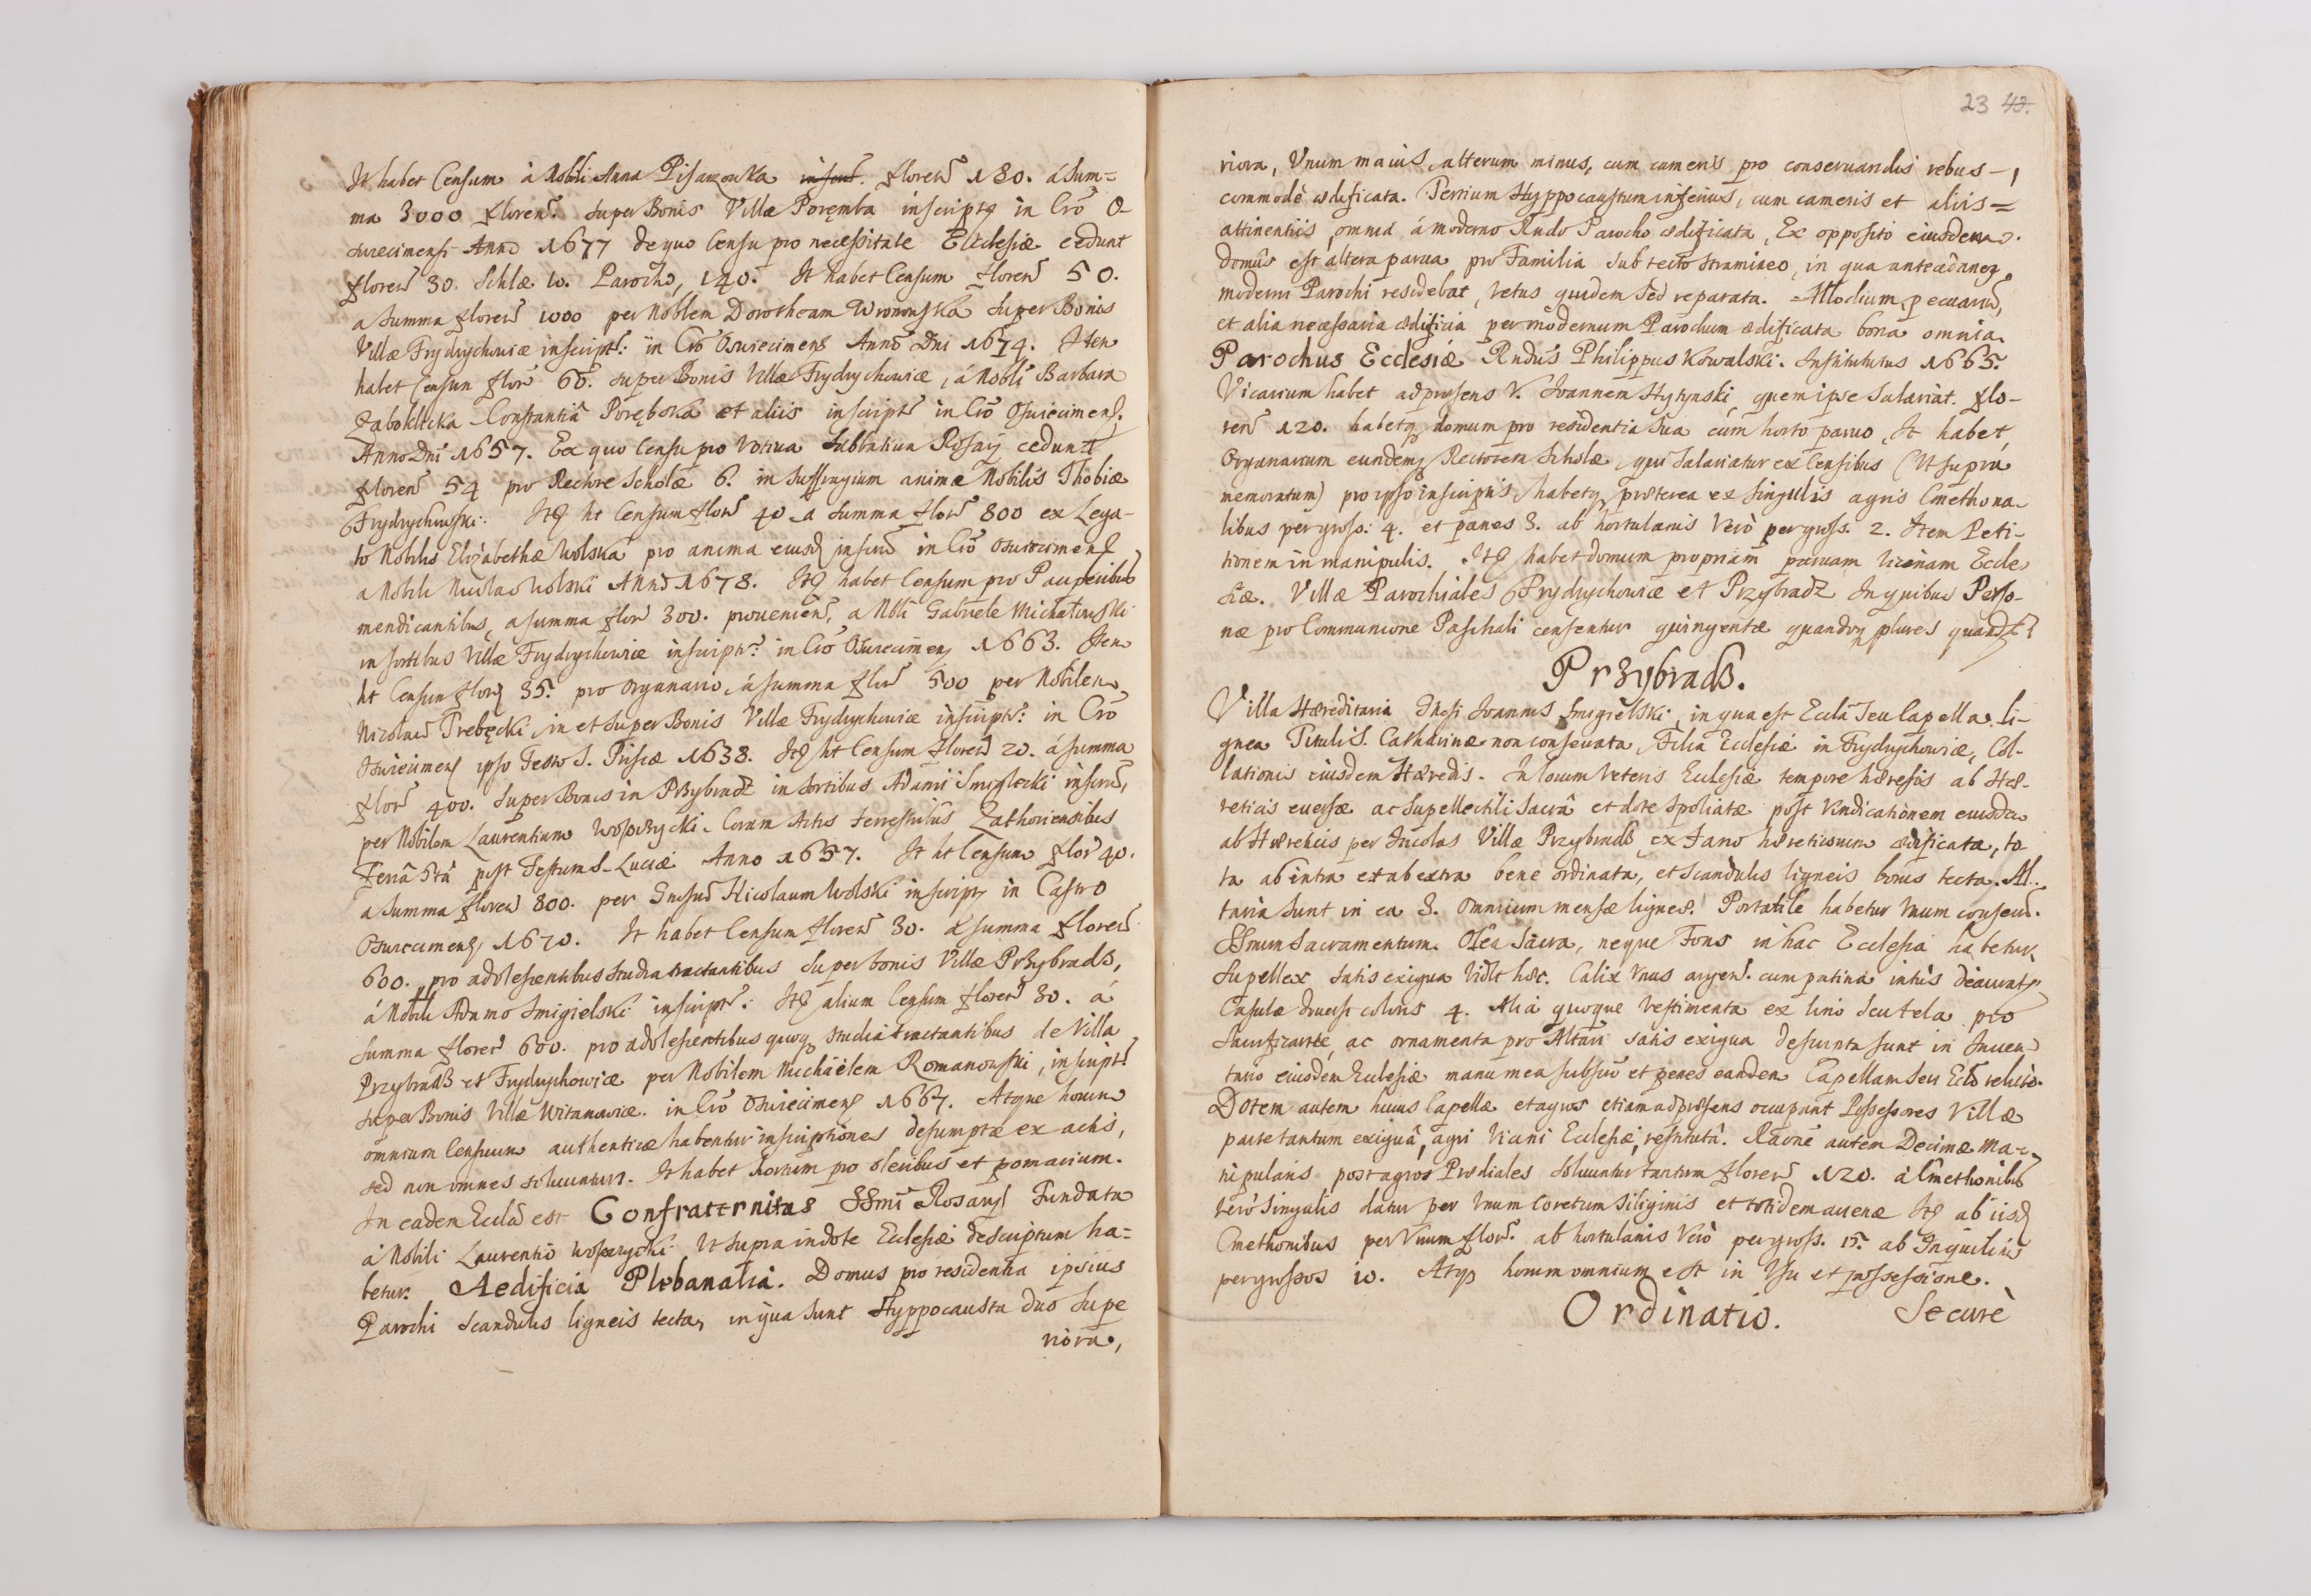 It habet Censum à Nobili Anna Pisarzouka inscrt. floren 180. á Sum=
ma 3000 floren. super Bonis Villæ Poręmba inscriptq in Cro O-
suiecimensi Anno 1677 de quo Censu pro necessitate Ecclesiæ cedunt
floren 30. Schlæ 10. Parocho, 140. It habet Censum floren 50.
a Summa floren 1000 per Noblem Dorotheam Wronouska super Bonis
Villæ Frydrychouice inscript: in Cro Osuiecimens Anno Dni 1674. Item
habet Censum flor 66. super Bonis Villæ Frydrychouice, á Nobli Barbara
Constantiâ Porębska et aliis inscript in Cro Osuiecimens,
Anno Dni 1657. Ex quo Censu pro Votiua Sabbatiua Rosarij cedunt
floren 54 pro Rectore Scholæ 6. in suffragium animæ Nobilis Thobiæ
Frydrychouski. Itq ht Censum flor 40 a Summa flor 800 ex Lega-
to Nobilis Elizabethæ Wolska pro anima eiusd inscrip in Cro Osuiecimens
a Nobili Wolski Anno 1678. Itq habet Censum pro Pauperibus
mendicantibus, a summa flor 300. prouenien, a Nbli Gabriele Michałouski
in sortibus Villæ Frydrychouice inscript: in Cro Osuiecimens 1663. Item
ht Censum flor 35. pro Organario, á summa flor 500 per Nobilem
Nicolaum Trebęcki, in et super Bonis Villæ Frydrychouice inscript: in Cro
Osuiecimens ipso Festo S. Priscæ 1638. Itq ht Censum floren 20. á summa
flor 400. super Bonis in Przybradz in sortibus Adami Smiglecki inscrip,
per Nobilem Laurentium Coram Actis terrestribus Zathoriensibus
Feriâ 5tâ post Festum S. Luciæ Anno 1657. It ht Censum flor 40.
a Summa floren 800. per Gnosum Nicolaum Wolski inscript in Castro
Osuiecimens 1670. It habet Censum floren 30. á summa floren
600. pro adolescentibus studia tractantibus super bonis Villæ Przybradz,
á Nobili Adamo Smigielski inscript: Itq alium Censum floren 30. á
summa floren 600. pro adolescentibus quoq studia tractantibus de Villa
Przybradz et Frydrychowice per Nobilem Michäelem Romanouski, inscript
super Bonis Villæ Witanouice in Cro Osuiecimens 1667. Atque horum
omnium Censuum authenticæ habentur inscriptiones desumptæ ex actis,
sed non omnes soluuntur. It habet hortum pro oleribus et pomarium.
In eadem Eccla est Confraternitas SSmi Rosarij Fundata
á Nobili Laurentio Ut supra in dote Ecclesiæ descriptum ha=
betur. Aedificia Plebanalia. Domus pro residentia ipsius
Parochi Scandulis ligneis tecta, in qua sunt Hyppocausta duo Supe
riora,
23 42.
riora, Unum maius, alterum minus, cum cameris pro conseruandis rebus –,
commodè ædificata. Tertium Hyppocaustum inferius, cum cameris et aliis =
attinentiis, omnia á moderno Rndo Parocho ædificata, Ex opposito eiusdem
domûs est altera parua pro Familia sub tecto stramineo, in qua antecedaneq
moderni Parochi residebat, vetus quidem sed reparata. Allodium pecuariu,
et alia necessaria ædificia per modernum Parochum ædificata bona omnia.
Parochus Ecclesiæ Rndus Philippus Kowalski. Institutus 1665.
Vicarium habet ad præsens V. Ioannem Hytynski, quem ipse Salariat. flo-
ren 120. habetq domum pro residentia sua cum horto paruo, It habet,
Organarium eundemq Rectorem Scholæ, qui Salariatur ex Censibus (Ut supra
memoratum) pro ipso inscriptis, habetq præterea ex singulis agris Cmethona-
libus per gross: 4. et panes 3. ab hortulanis Verò per gross. 2. Item Peti-
tionem in manipulis. Itq habet domum propriam paruam vicinam Eccle
siæ. Villæ Parochiales Frydrychouice et Przybradz In quibus Perso-
næ pro Communione Paschali censentur quingentæ quandoq plures
Przybradz.
Villa Hæreditaria Gnosi Ioannis Smigielski, in qua est Eccla seu Capella li-
gnea Tituli S. Catharinæ non consecrata, Filia Ecclesiæ in Frydrychowice, Col-
lationis eiusdem Hæredis. In locum Veteris Ecclesiæ tempore hæresis ab Hæ-
reticis euersæ ac supellectili Sacrâ et dote Spoliatæ post Vindicationem eiusdem
ab Hæreticis per Incolas Villæ Przybradz ex Fano hæreticorum ædificata, to-
ta ab intra et ab extra bene ordinata, et scandulis ligneis bonis tecta. Al-
taria sunt in ea 3. Omnium mensæ ligneæ. Portatile habetur Vnum consecr.
SSmum Sacramentum. Olea Sacra, neque Fons in hac Ecclesia habetur.
Supellex satis exigua Vidlt hæc. Calix Vnus argent. cum patina intùs deaurat
Casulæ diuersi coloris 4. Alia quoque Vestimenta ex lino seu tela pro
Sacrificante, ac ornamenta pro Altari satis exigua descripta sunt in Inuen
tario eiusdem Ecclesiæ manu mea subscrip et penes eandem Capellam seu Eccl relicto.
Dotem autem huius Capellæ et agros etiam ad præsens occupant Possessores Villæ
parte tantum exiguâ, agri Vicini Ecclesiæ, restitutâ. Raone autem Decimæ ma-
nipularis post agros Prædiales soluuntur tantum floren 120. á Cmethonibus
Verò Singulis datur per Vnum Coretum Siliginis et totidem auenæ Itq ab iisd
Cmethonibus per Vnum flor. ab hortulanis Verò per gross. 15. ab Inquilinis
per grossos 10. Atq horum omnium est in Vsu et possessione.
Ordinatio. Securè